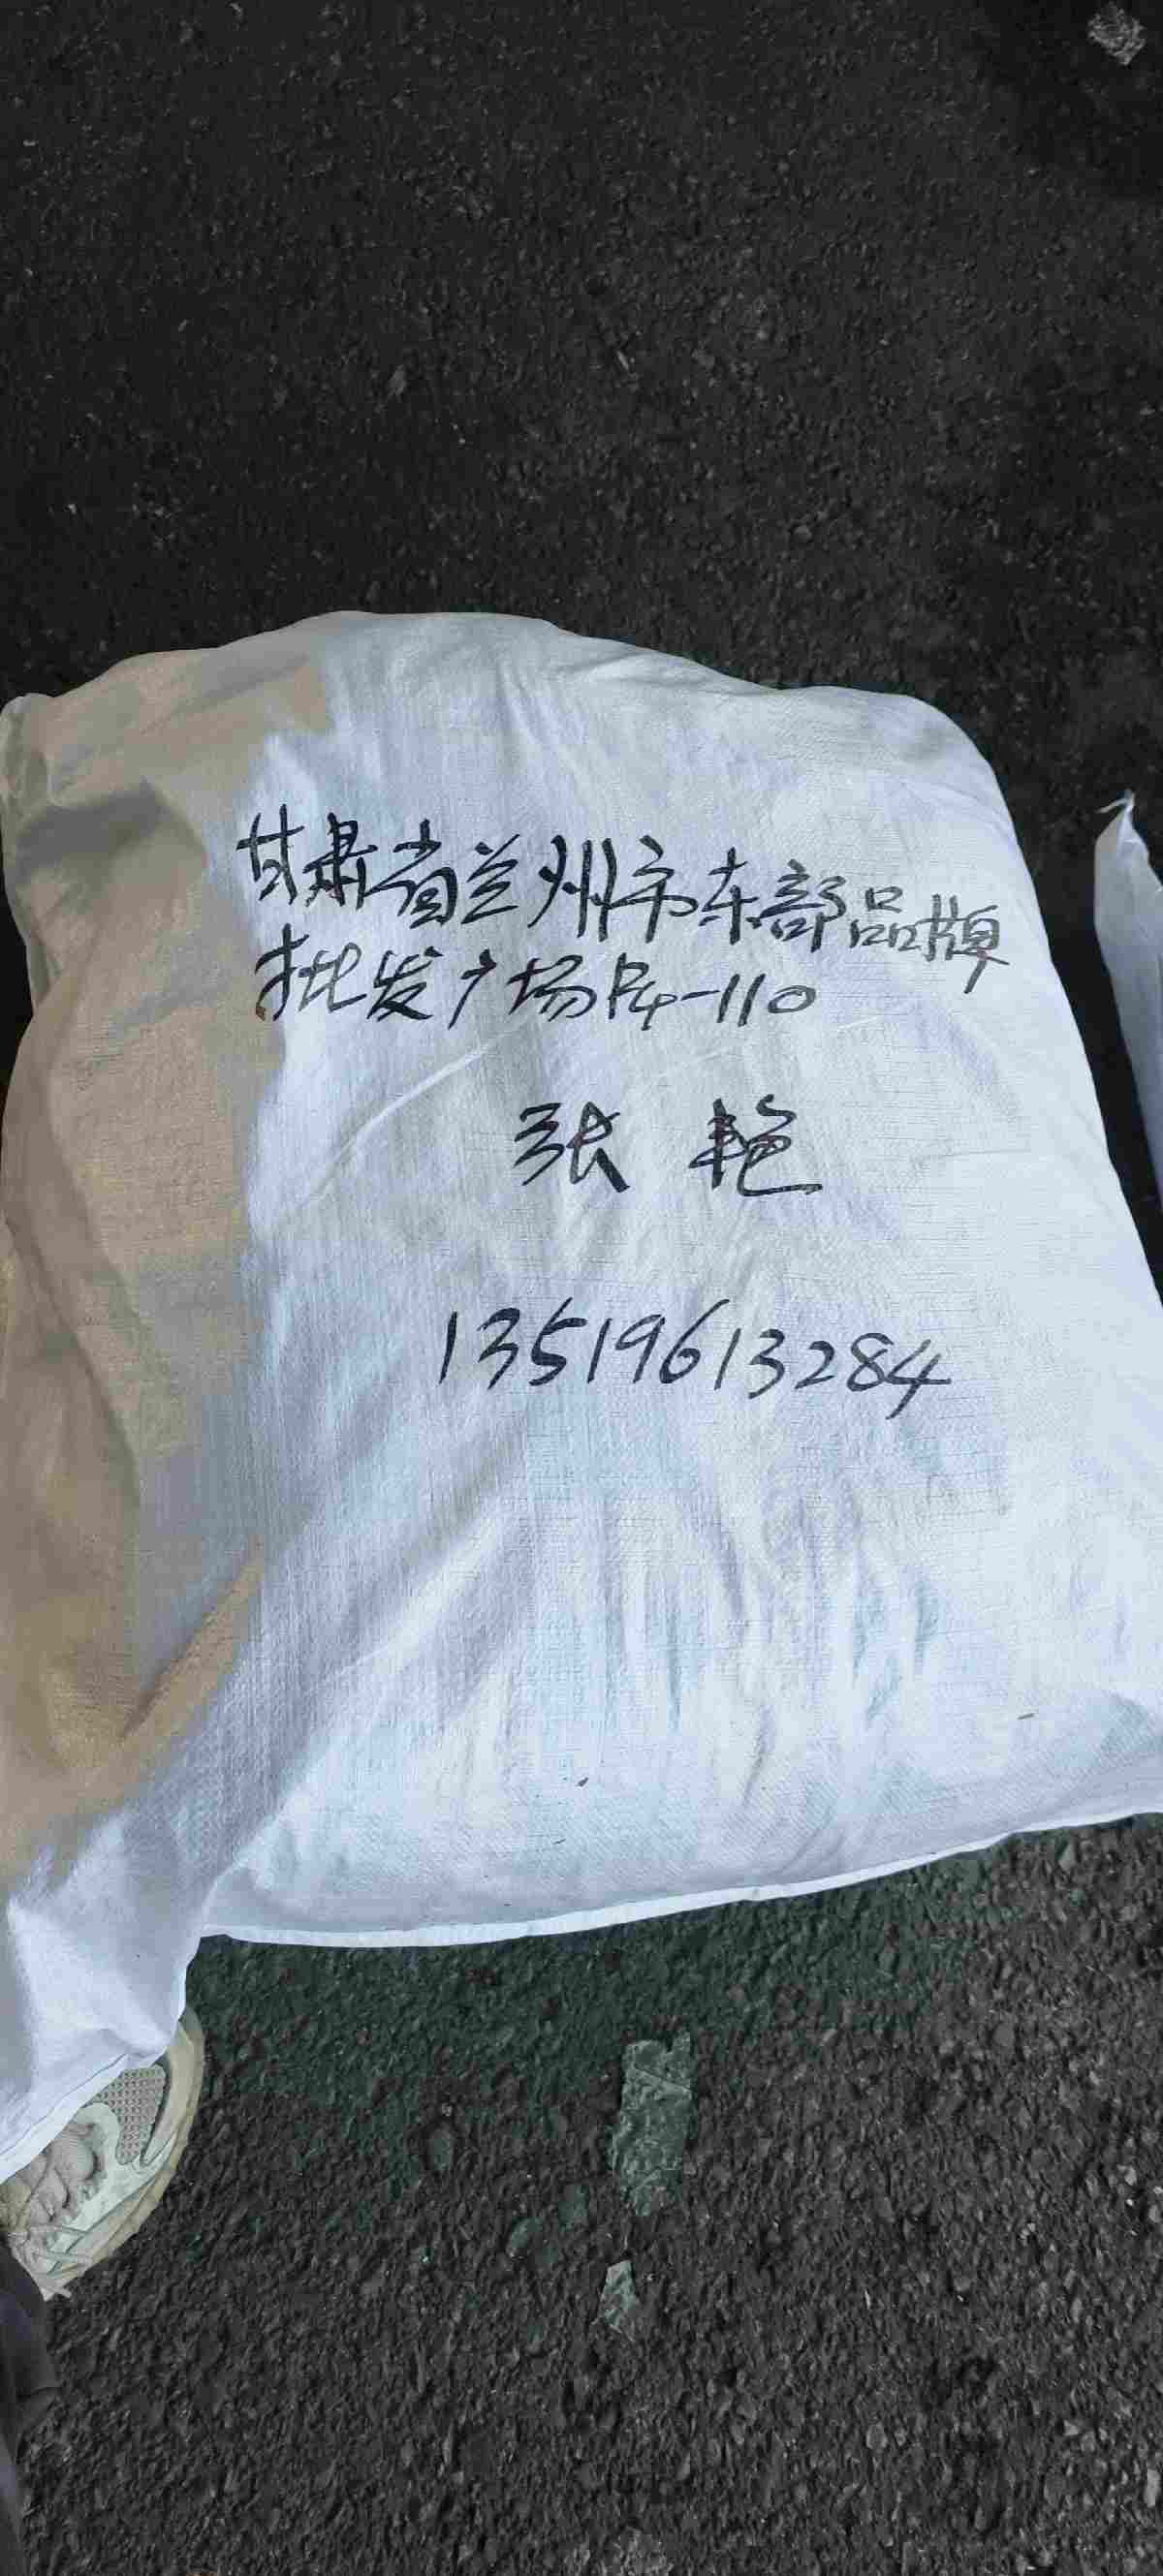 甘肃省兰州市东部品牌
批发广场F4-110
张 艳
13519613284